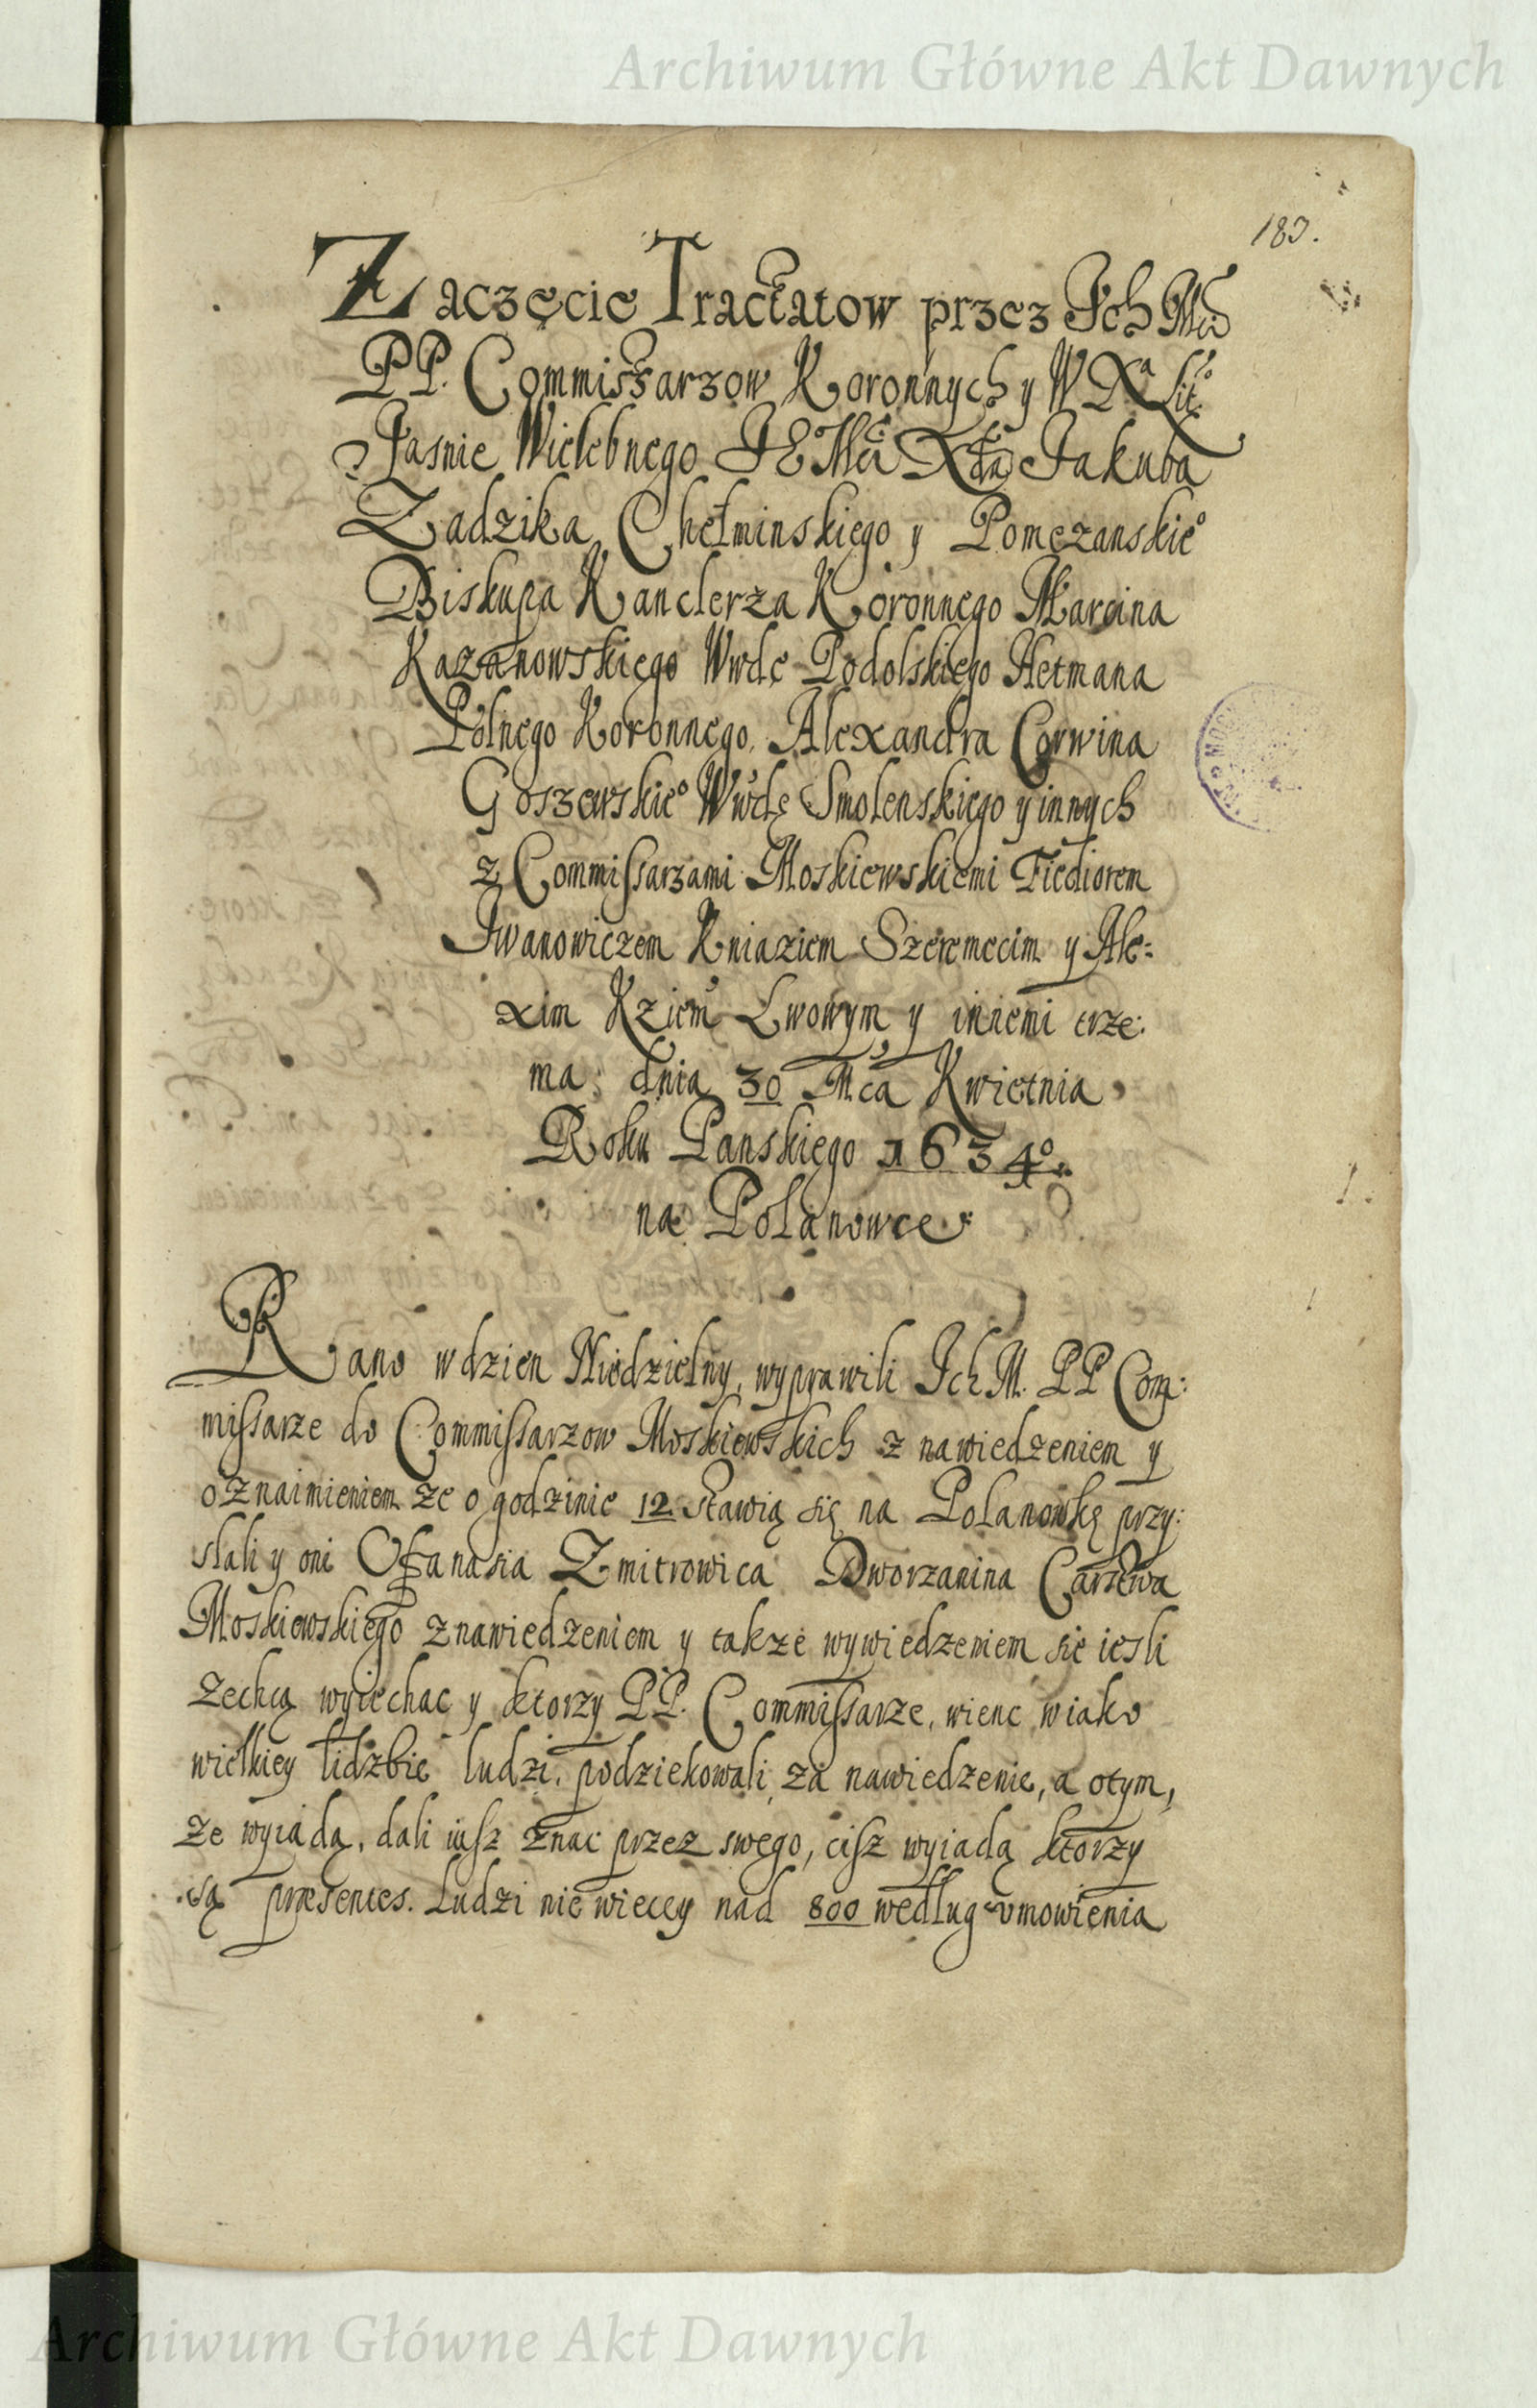 Archiwum Główne Akt Dawnych
183.
Zaczęcie Tractatow przez Ich Mći
PP. Commissarzow Koronnych y W Xª Litº
Jasnie Wielebnego JE Mći Xdza Jakuba
Zadzika Chełminskiego y Pomezanskieº
Biskupa Kanclerza Koronnego Marcina
Kazanowskiego Wwdę Podolskiego Hetmana
Polnego Koronnego, Alexandra Corwina
Goszewskieº Wwdę Smolenskiego y innych
z Commissarzami Moskiewskiemi Fiediorem
Iwanowiczem Kniaziem Szeremecim y Ale:
xim Kziem Lwowym y innemi trze:
ma; dnia 30 Mca Kwietnia
Roku Panskiego 1634º.
na Polanowce
Rano w dzien Niedzielny, wyprawili Ich M. PP Com:
missarze do Commissarzow Moskiewskich z nawiedzeniem y
oznaimieniem ze o godzinie 12 stawią się na Polanowkę przy:
slali y oni Ofanasia Zmitrowica Dworzanina Carstwa
Moskiewskiego z nawiedzeniem y takze wywiedzeniem sie iesli
zechcą wyiechac y ktorzy PP. Commissarze, wienc w iako
wielkiey lidzbie ludzi, podziekowali za nawiedzenie, a otym,
ze wyiadą, dali iusz znac przez swego, cisz wyiadą ktorzy
są præsentes. Ludzi nie wiecey nad 800 według vmowienia
Archiwum Główne Akt Dawnych